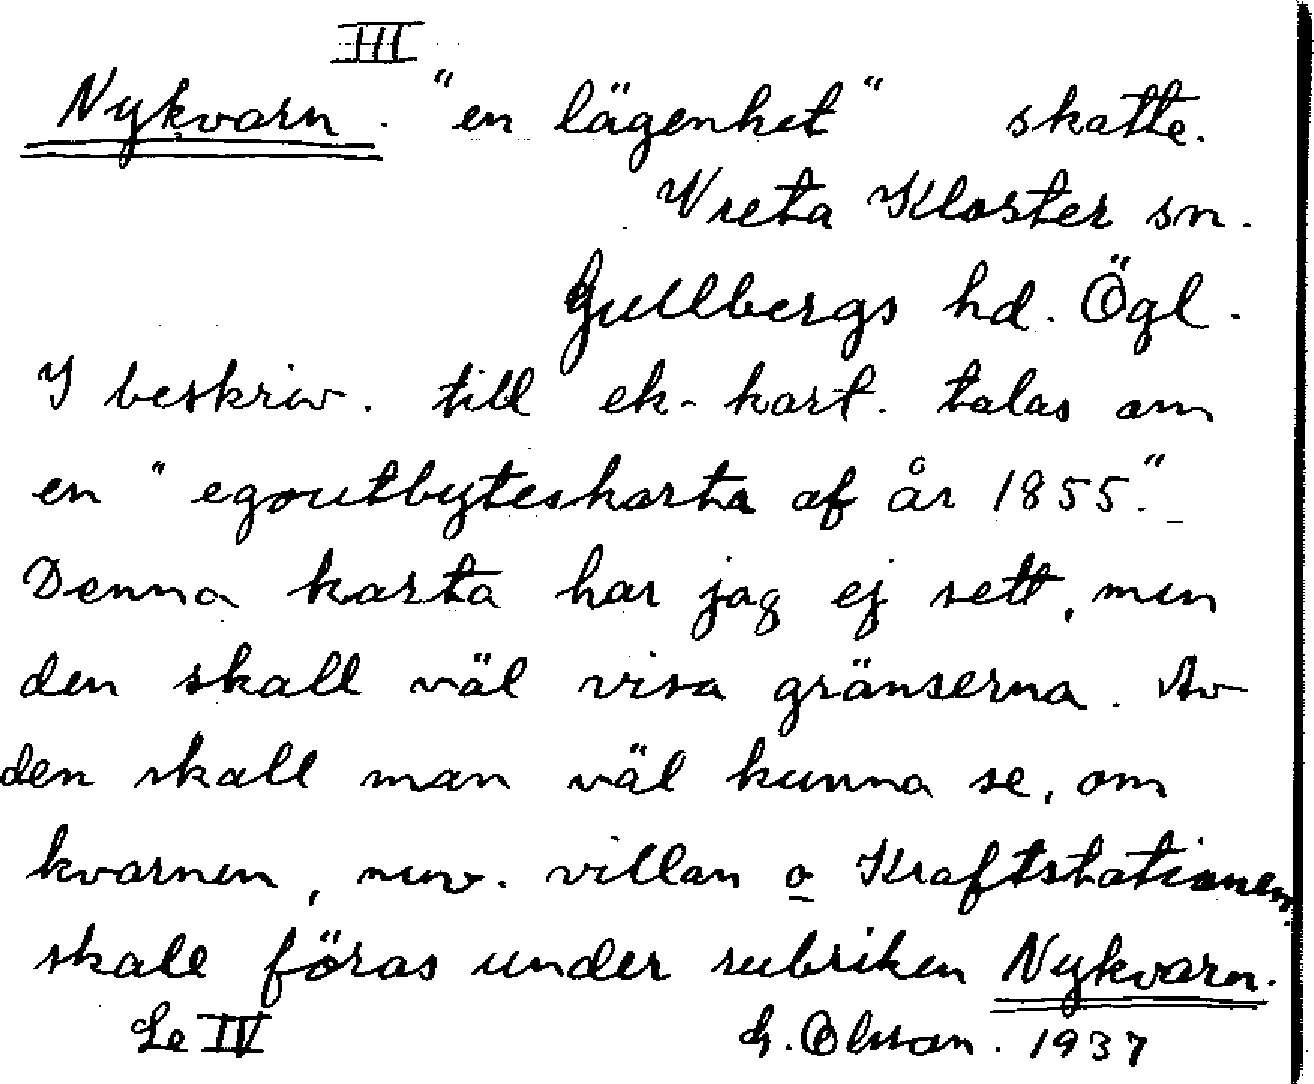 III
Nykvarn. "en lägenhet" skatte.
Vreta Kloster sn.
Gullbergs hd. Ögl.
I beskriv. till ek-kart. talas om
en "egoutbyteskarta af år 1855."
Denna karta har jag ej sett, men
den skall väl visa gränserna. Av
den skall man väl kunna se, om
kvarnen, nuv. villan o Kraftstationen
skall föras under rubriken Nykvarn.
Se IV G. Olsson. 1937